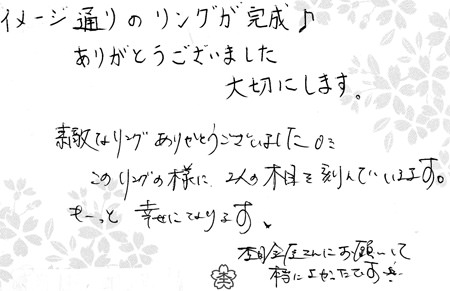 イメージ通りのリングが完成♪
ありがとうございました
大切にします。
素敵なリングありがとうございました。
このリングの様に、2人の木目を刻んでいきます。
もーっと幸せになります、
杢目金屋さんにお願いして
本当によかったです